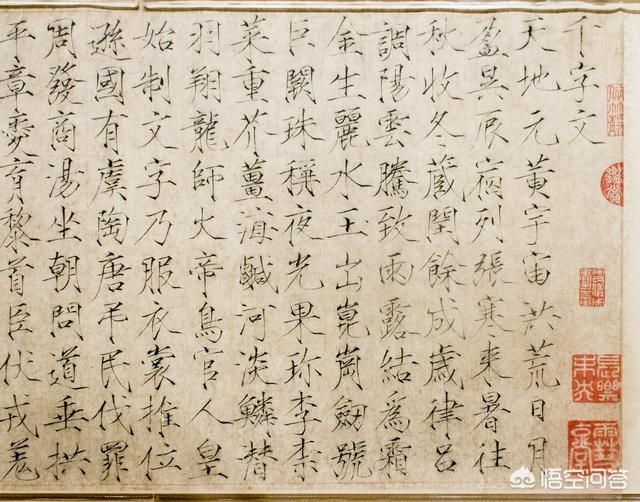 千字文
天地元黃宇宙洪荒日月
盈昃辰宿列張寒来暑往
秋收冬蔵閏餘成歳律呂
調陽雲騰致雨露結爲霜
金生麗水玉出崑崗劒號
巨闕珠稱夜光果珍李柰
菜重芥薑海鹹河淡鱗潛
羽翔龍師火帝鳥官人皇
始制文字乃服衣裳推位
遜國有虞陶唐弔民伐罪
周發商湯坐朝問道垂拱
平章愛育黎首臣伏戎羌
長樂未央
悟空问答